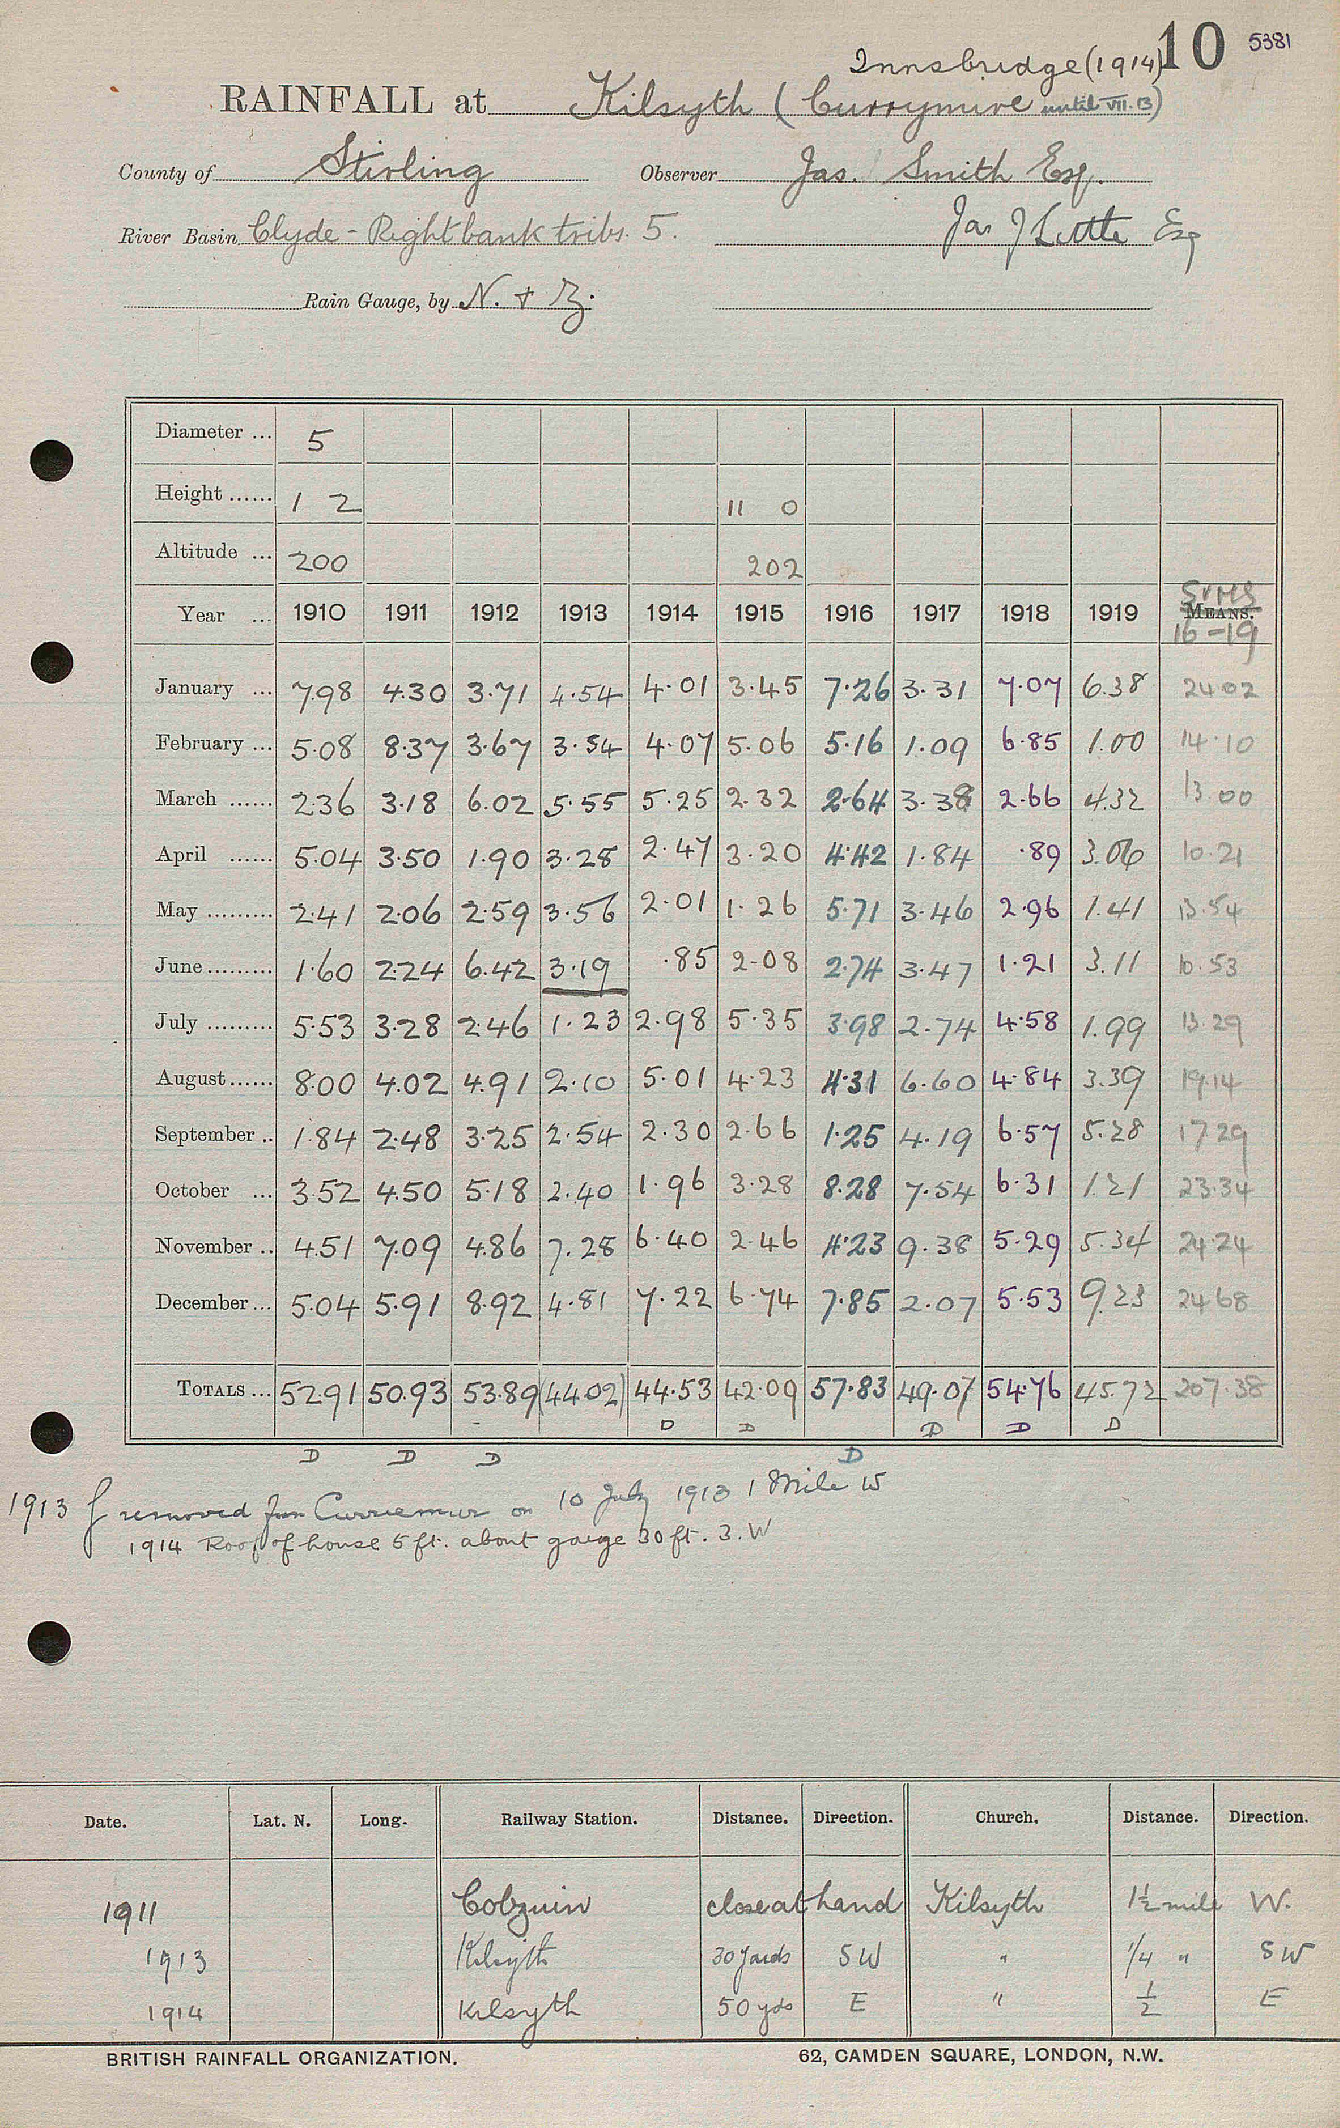 10 5381
Innsbridge (1914)
RAINFALL at Kilsyth (Currymire until VII.13)
County of Stirling Observer Jas. Smith Esq.
River Basin Clyde - Right bank tribs. 5. Jas J Little Esq
Rain Gauge, by N. + Z.
Diameter ... 5
Height ...... 1 2 11 0
Altitude ... 200 202
Year ... 1910 1911 1912 1913 1914 1915 1916 1917 1918 1919 MEANS. Sums 16-19
January ... 7.98 4.30 3.71 4.54 4.01 3.45 7.26 3.31 7.07 6.38 24.02
February ... 5.08 8.37 3.67 3.54 4.07 5.06 5.16 1.09 6.85 1.00 14.10
March ...... 2.36 3.18 6.02 5.55 5.25 2.32 2.64 3.38 2.66 4.32 13.00
April ...... 5.04 3.50 1.90 3.28 2.47 3.20 4.42 1.84 .89 3.06 10.21
May ......... 2.41 2.06 2.59 3.56 2.01 1.26 5.71 3.46 2.96 1.41 13.54
June ......... 1.60 2.24 6.42 3.19 .85 2.08 2.74 3.47 1.21 3.11 10.53
July ......... 5.53 3.28 2.46 1.23 2.98 5.35 3.98 2.74 4.58 1.99 13.29
August ...... 8.00 4.02 4.91 2.10 5.01 4.23 4.31 6.60 4.84 3.39 19.14
September .. 1.84 2.48 3.25 2.54 2.30 2.66 1.25 4.19 6.57 5.28 17.29
October ... 3.52 4.50 5.18 2.40 1.96 3.28 8.28 7.54 6.31 1.21 23.34
November .. 4.51 7.09 4.86 7.28 6.40 2.46 4.23 9.38 5.29 5.34 24.24
December ... 5.04 5.91 8.92 4.81 7.22 6.74 7.85 2.07 5.53 9.23 24.68
TOTALS ... 52.91 50.93 53.89 (44.02) 44.53 42.09 57.83 49.07 54.76 45.72 207.38
D D D D D
D D D D
1913 removed from Curriemur on 10 July 1913 1 Mile W
1914 Roof of house 5 ft. about gauge 30 ft. S.W
Date. Lat. N. Long. Railway Station. Distance. Direction. Church. Distance. Direction.
1911 Colzuin close at hand Kilsyth 1½ mile W.
1913 Kilsyth 30 yards SW " ¼ " SW
1914 Kilsyth 50 yds E " ½ E
BRITISH RAINFALL ORGANIZATION. 62, CAMDEN SQUARE, LONDON, N.W.